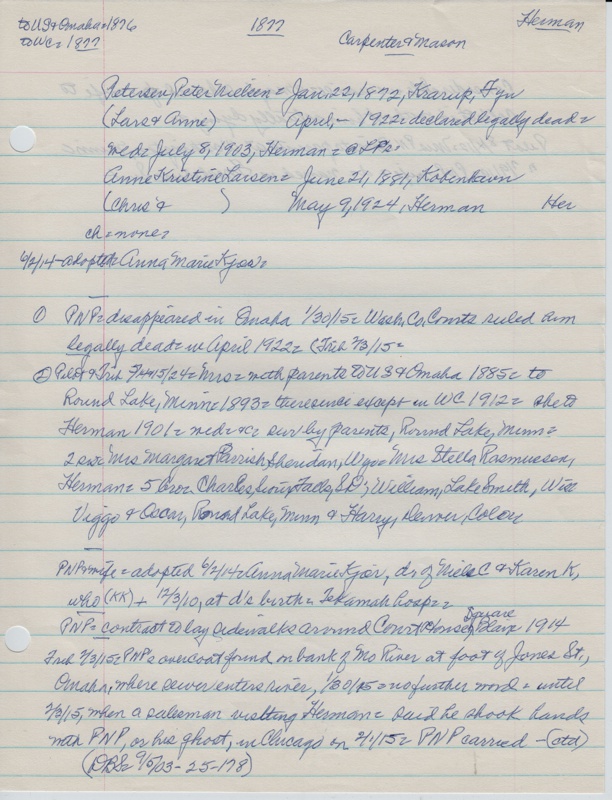 to US & Omaha = 1876 1877 Herman
to WC = 1877 Carpenter & Mason
Petersen, Peter Nielsen = Jan. 22, 1872, Krarup, Fyn
(Lars & Anne) April, - 1922 = declared legally dead =
med = July 8, 1903, Herman = @ LPs:
Anne Kristine Larsen = June 21, 1881, Kobenhavn
(Chris & ) May 9, 1924, Herman Her
ch = none =
6/2/14 - adopted = Anna Marie Kjor =
① PNP = disappeared in Omaha 1/30/15 = Wash. Co. Courts ruled him
legally dead = in April 1922 = (Trib 2/3/15 =
② Pilot & Trib 5/15/24 = Mrs = with parents to US & Omaha 1885 = to
Round Lake, Minn = 1893 = there since except in WC 1912 = she to
Herman 1901 = med = &c = sur by parents, Round Lake, Minn =
2 sis = Mrs Margaret Parrish, Sheridan, Wyo = Mrs Stella Rasmussen,
Herman = 5 bro = Charles, Sioux Falls, SD; William, Lake Smith, Wis
Viggo & Oscar, Round Lake, Minn & Harry, Denver, Colo =
PNP & wife = adopted 6/2/14 = Anna Marie Kjor, d. of Niels C & Karen K,
who (KK) + 12/3/10, at d's birth = Tekamah hosp =
PNP = contract to lay sidewalks around Court House Square, Blair 1914
Trib 2/3/15 = PNPs overcoat found on bank of Mo River at foot of Jones St.,
Omaha, where sewer enters river, 1/30/15 = no further word = until
2/3/15, when a salesman visiting Herman = said he shook hands
with PNP, or his ghost, in Chicago on 2/1/15 = PNP carried - (ctd)
(DBS = 9/5/03 - 25 - 178)